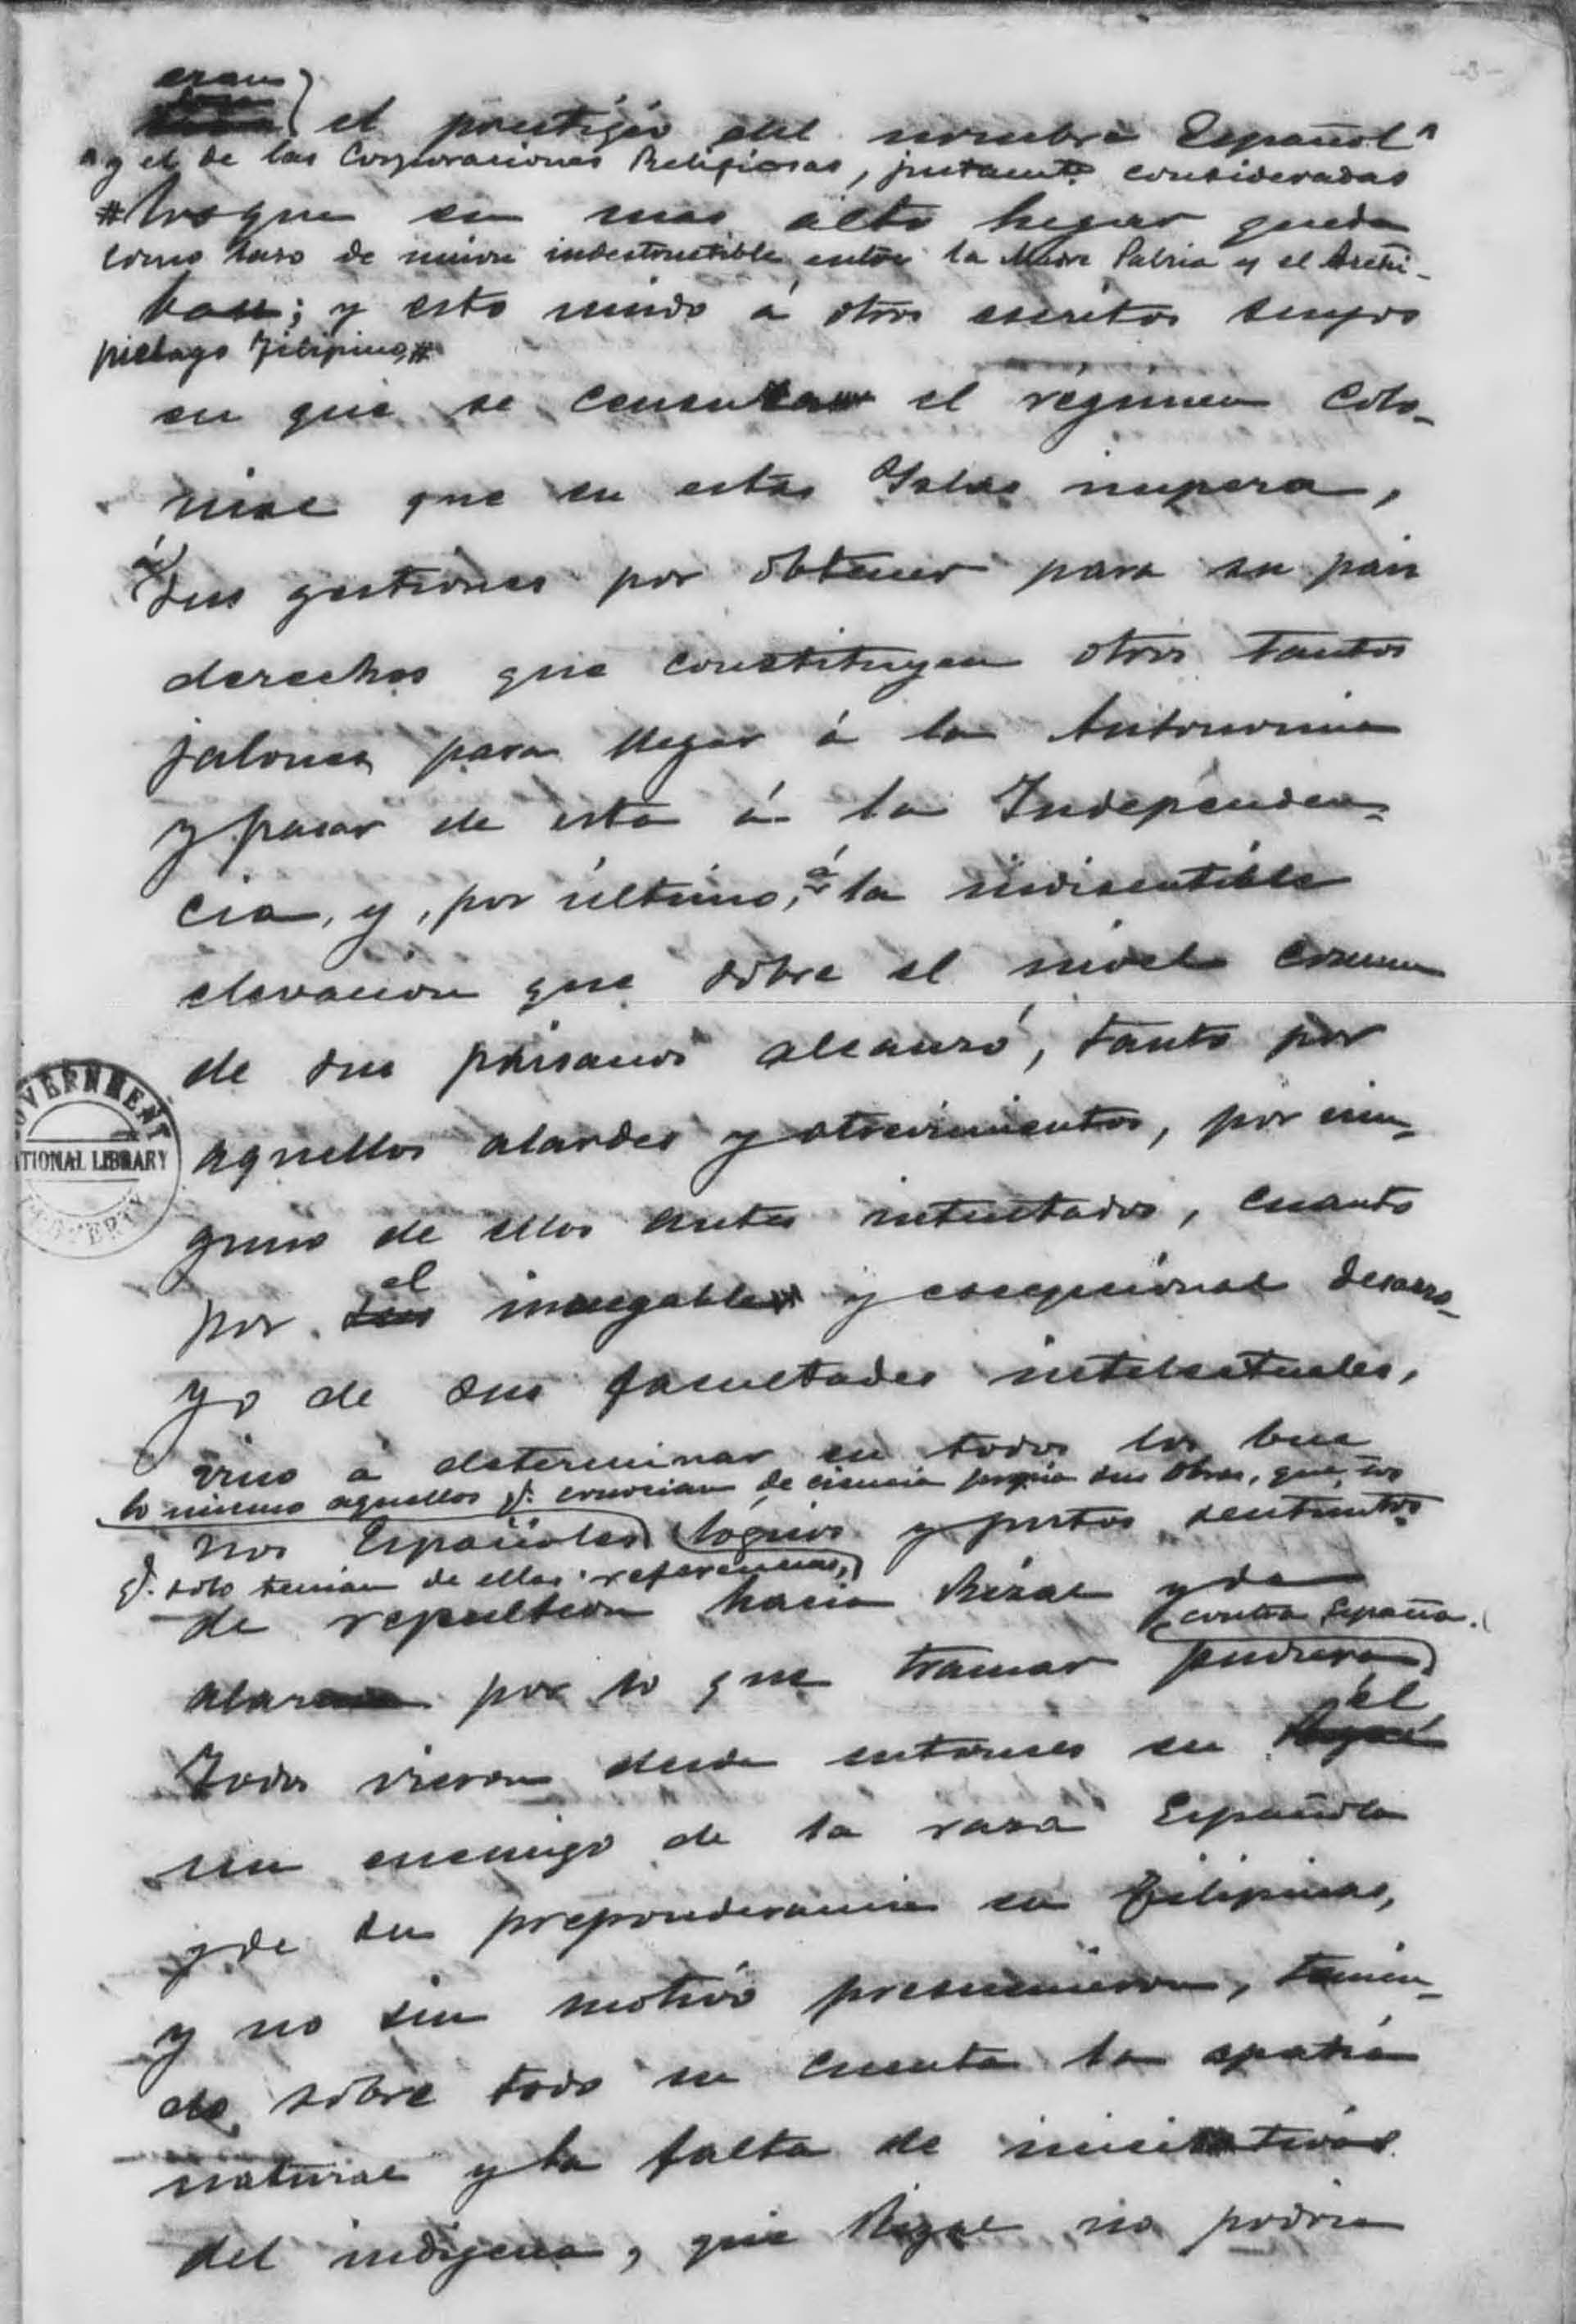 -3-
eran
el prestigio del nombre Español ^
^ y el de las Corporaciones Religiosas, justamte. consideradas
# los que en mas alto lugar queda
como laso de union indestructible entre la Madre Patria y el Archi-
ban; y esto unido á otros escritos suyos
pielago Filipino, #
en que se censura el régimen colo-
nial que en estas Islas impera,
á sus gestiones por obtener para su pais
derechos que constituyen otros tantos
jalones para llegar á la Autonomia
y pasar de esta á la Independen-
cia, y, por último, á la indiscutible
elevacion que sobre el nivel comun
de sus paisanos alcanzó, tanto por
aquellos alardes y atrevimientos, por nin-
guno de ellos antes intentados, cuanto
el
por sus innegable y excepcional desarro-
yo de sus facultades intelectuales,
vino á determinar en todos los bue
lo mismo aquellos q. conocian de ciencia propia sus obras, que los
nos Españoles lógicos y justos sentimtos.
q. solo tenian de ellas referencias,
de repulsion hacia Rizal y de
contra España.
alarma por lo que tramar pudiera
él
Todos vieron desde entonces en
un enemigo de la raza Española
y de su preponderancia en Filipinas,
y no sin motivo presumieron, tenien-
do sobre todo en cuenta la apatia
natural y la falta de iniciativas
del indigena, que Rizal no podria
GOVERNMENT
NATIONAL LIBRARY
PROPERTY